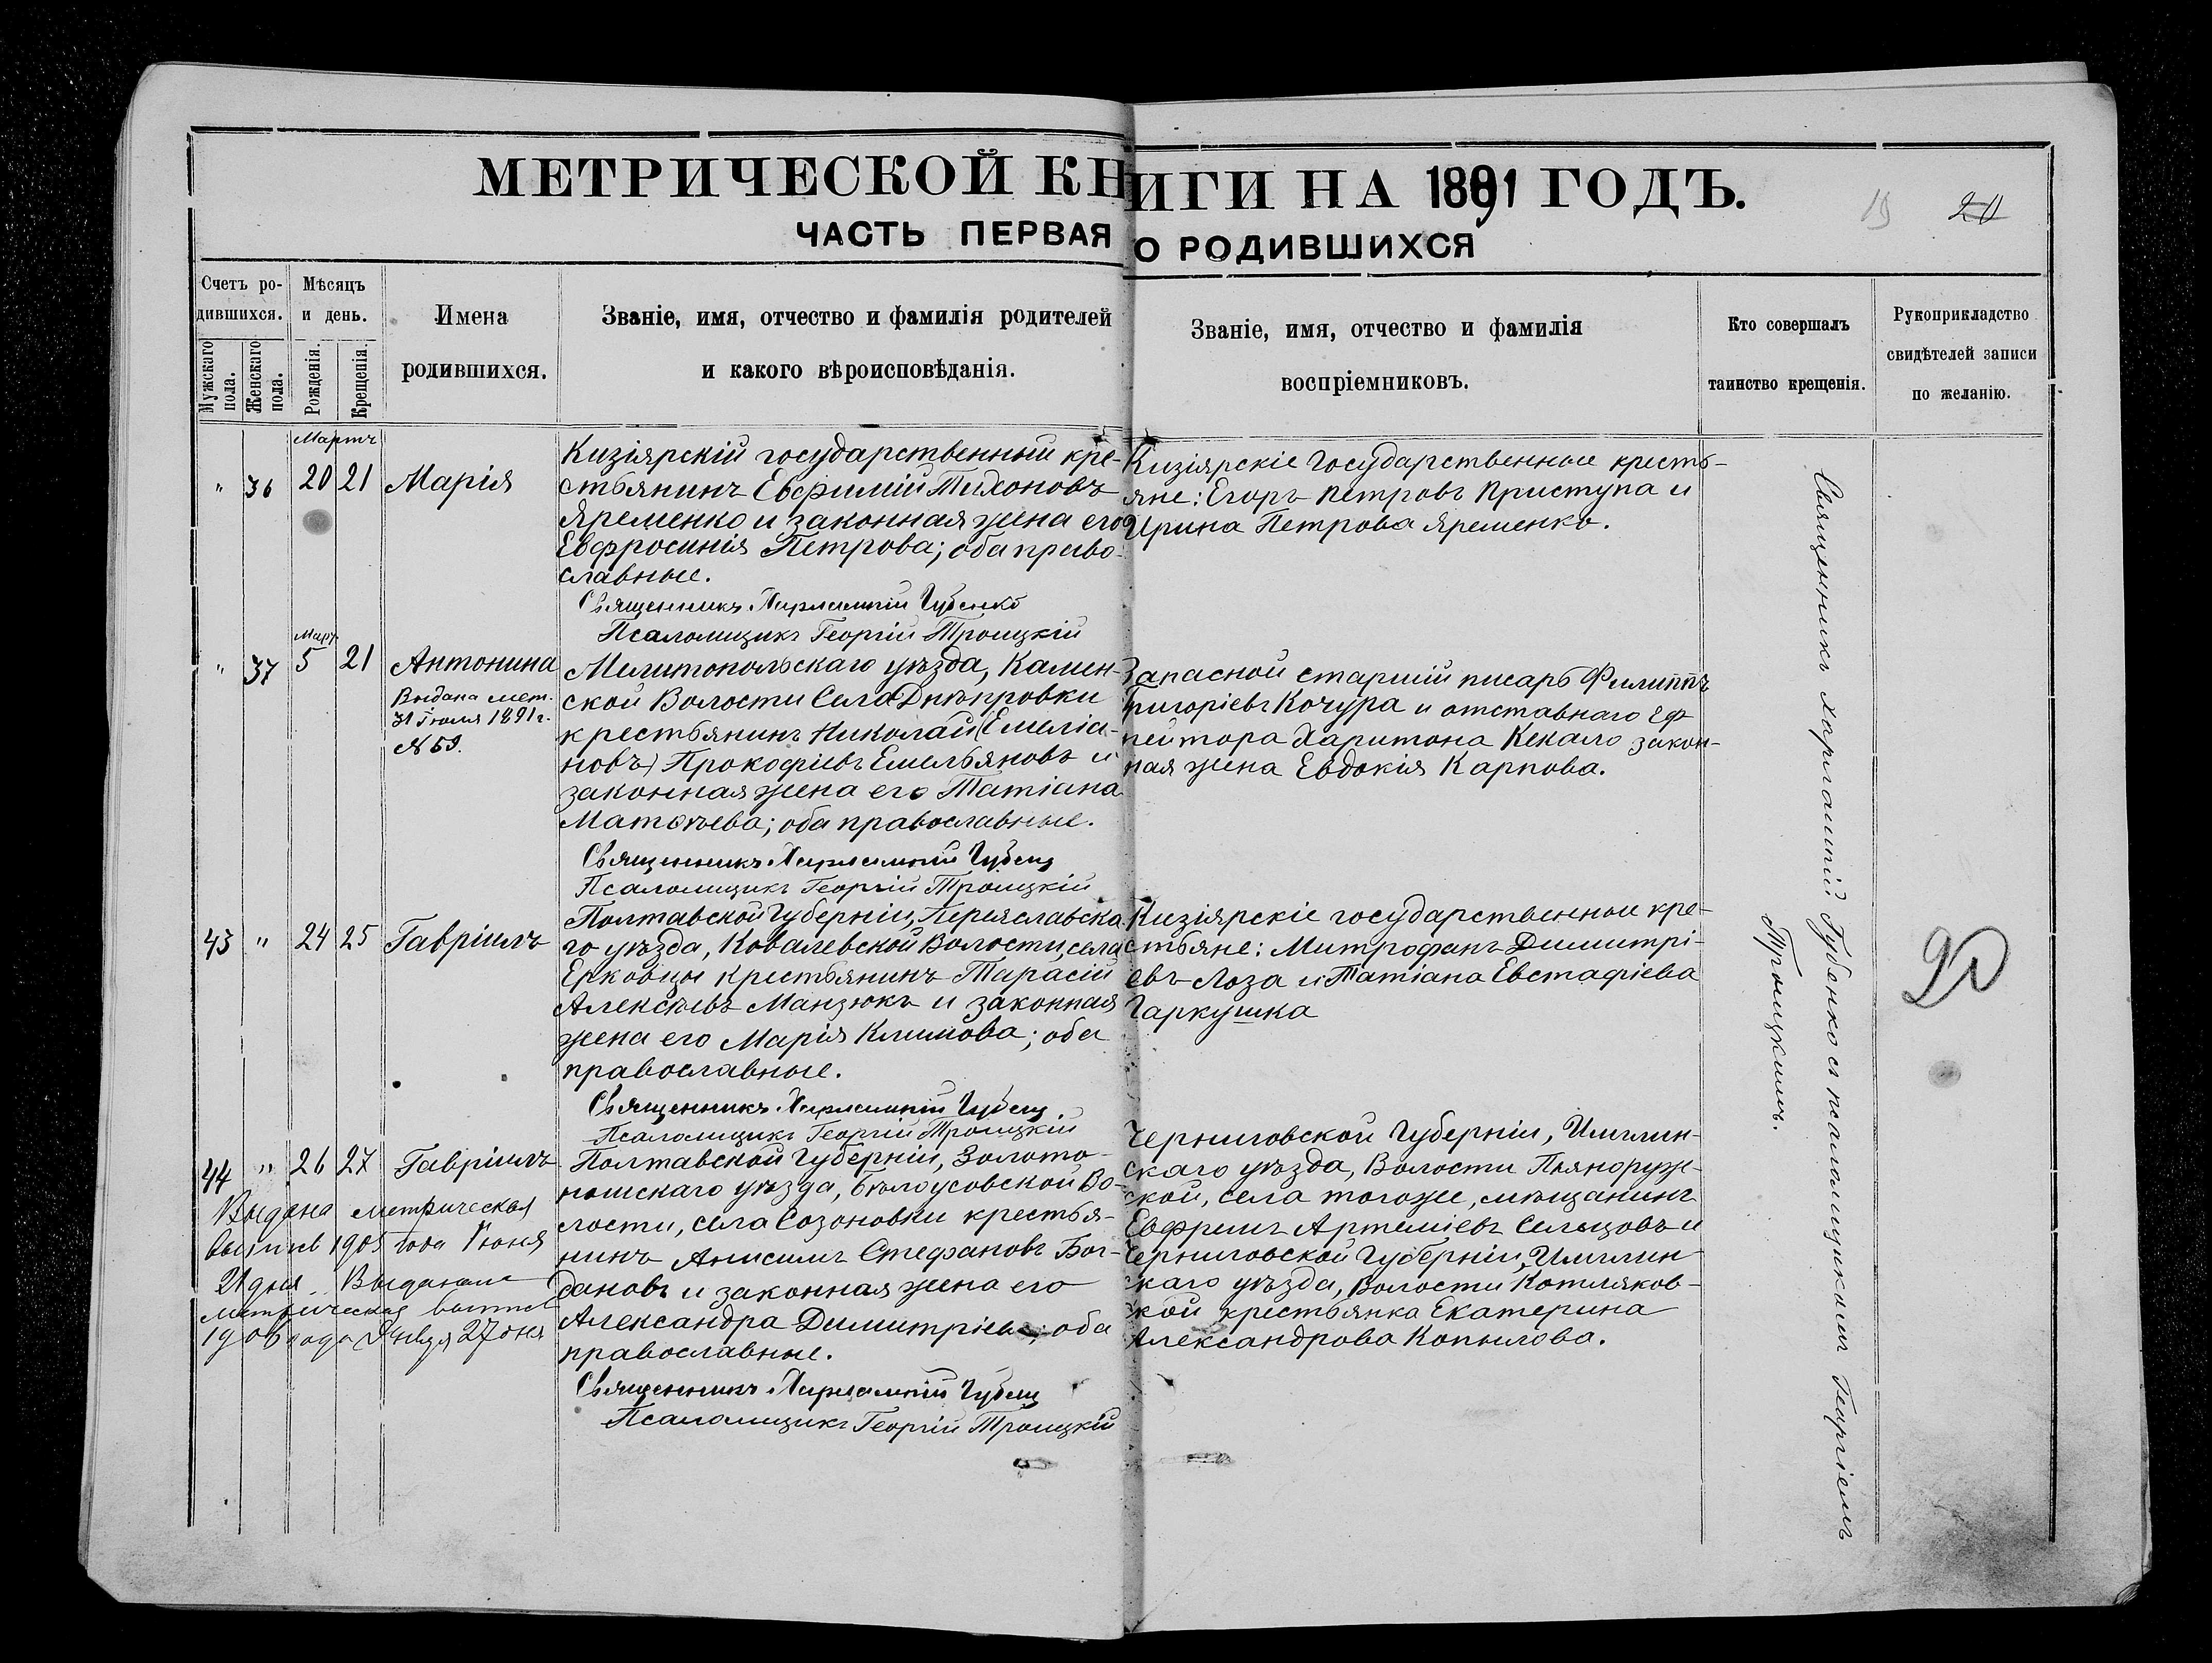 МЕТРИЧЕСКОЙ КНИГИ НА 1891 ГОДЪ.
ЧАСТЬ ПЕРВАЯ О РОДИВШИХСЯ
19 20
Счетъ ро-
дившихся.
Мужскаго пола.
Женскаго пола.
Мѣсяцъ
и день.
Рожденія.
Крещенія.
Имена
родившихся.
Званіе, имя, отчество и фамилія родителей
и какого вѣроисповѣданія.
Званіе, имя, отчество и фамилія
воспріемниковъ.
Кто совершалъ
таинство крещенія.
Рукоприкладство
свидѣтелей записи
по желанію.
Мартъ
" 36 20 21 Марія
Кизіярскій государственный кре-
стьянинъ Евфимій Тихоновъ
Яременко и законная жена его
Евфросинія Петрова; оба право-
славные.
Священникъ Харлампій Губенко
Псаломщикъ Георгій Троицкій
Кизіярскіе государственные кресть-
яне: Егоръ Петровъ Приступа и
Ирина Петрова Яременко.
Март
" 37 5 21 Антонина
Выдана мет.
31 Іюля 1891 г.
№ 59.
Мелитопольскаго уѣзда, Камен-
ской Волости Села Днѣпровки
крестьянинъ Николай (Емеліа-
новъ) Прокофіевъ Емельяновъ и
законная жена его Татіана
Матѳѣева; оба православные.
Священникъ Харлампій Губенко
Псаломщикъ Георгій Троицкій
Запасной старшій писарь Филиппъ
Григоріевъ Кочура и отставнаго еф
рейтора Харитона Кекало закон-
ная жена Евдокія Карпова.
43 " 24 25 Гавріилъ
Полтавской Губерніи, Переяславска
го уѣзда, Ковалевской Волости, села
Ерковцы крестьянинъ Тарасій
Алексѣевъ Манзюкъ и законная
жена его Марія Климова; оба
православные.
Священникъ Харлампій Губенко
Псаломщикъ Георгій Троицкій
Кизіярскіе государственные кре-
стьяне: Митрофанъ Димитрі-
евъ Лоза и Татіана Евстафіева
Гаркушка
44 " 26 27 Гавріилъ
Выдана метрическая
выпись 1905 года Іюня
21 дня. Выдана
метрическая выпись
1906 года Января 27 дня
Полтавской Губерніи, Золото-
ношскаго уѣзда, Бѣлоусовской Во-
лости, села Созоновки крестья-
нинъ Анисимъ Стефановъ Бог-
дановъ и законная жена его
Александра Димитріева; оба
православные.
Священникъ Харлампій Губенко
Псаломщикъ Георгій Троицкій
Черниговской Губерніи, Имглин-
скаго уѣзда, Волости Пьяноруж-
ской, села тогоже, мѣщанинъ
Евфремъ Артеміевъ Сельцовъ и
Черниговской Губерніи, Имглин-
скаго уѣзда, Волости Котляков-
ской крестьянка Екатерина
Александрова Копылова.
Священникъ Харлампій Губенко съ псаломщикомъ Георгіемъ
Троицкимъ.
20